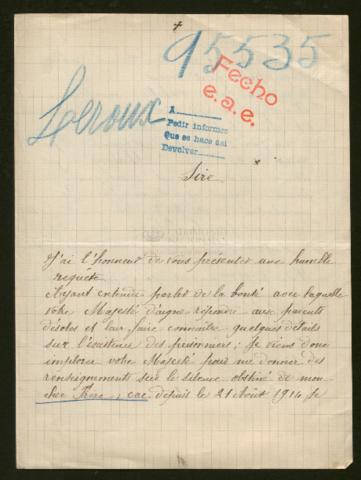 95535
Leroux
Fecho
e.a.e.
A
Pedir informes
Que se hace asi
Devolver
Sire
J'ai l'honneur de vous présenter une humble
requête
Ayant entendu parler de la bonté avec laquelle
votre Majesté daigne répondre aux parents
désolés et leur faire connaître quelques détails
sur l'existence des prisonniers; Je viens donc
implorer votre Majesté pour me donner des
renseignements sur le silence obstiné de mon
cher depuis le 21 Août 1914 Je